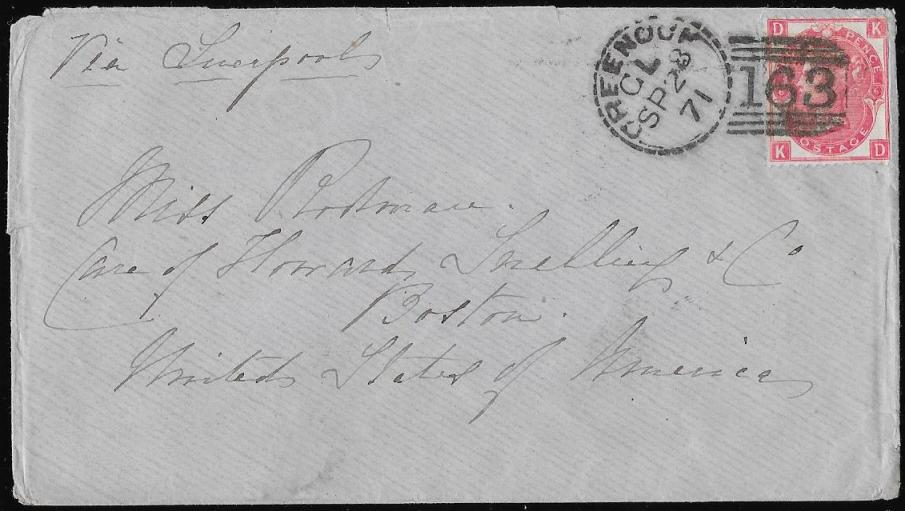 Via Liverpool
GREENOCK
CL
SP 28
71
163
D K
PENCE
POSTAGE
K D
Miss Rodman.
Care of Howard, Snelling & Co
Boston.
United States of America